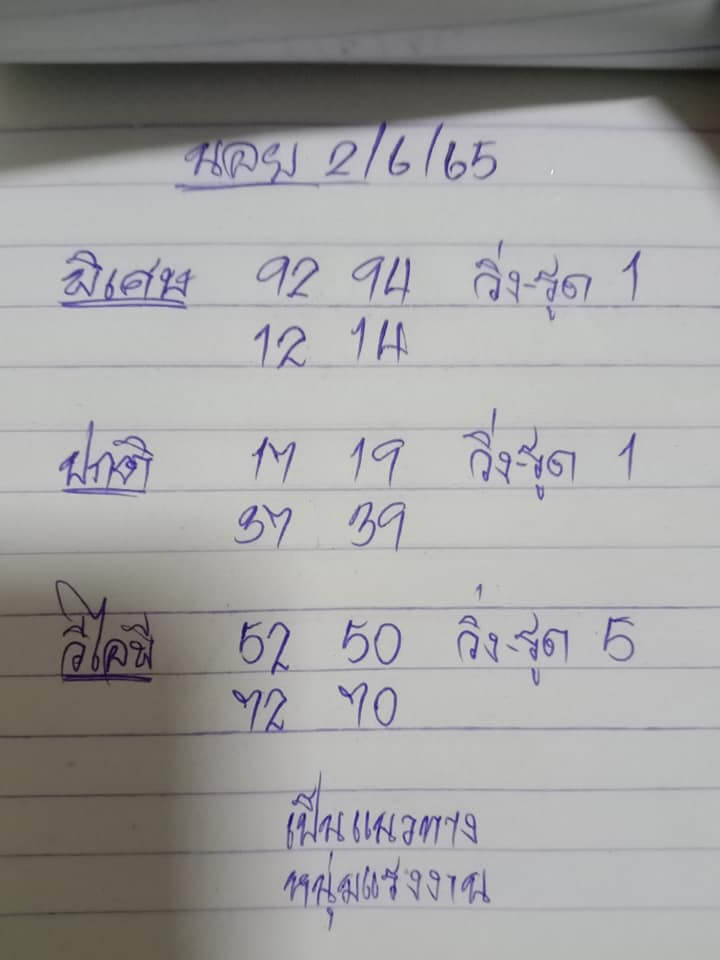 นอย 2/6/65
พิเศษ 92 94 วิ่ง-รูด 1
12 14
ปกติ 17 19 วิ่ง-รูด 1
37 39
วีไอพี 52 50 วิ่ง-รูด 5
72 70
เป็นแนวทาง
หนุ่มแรงงาน